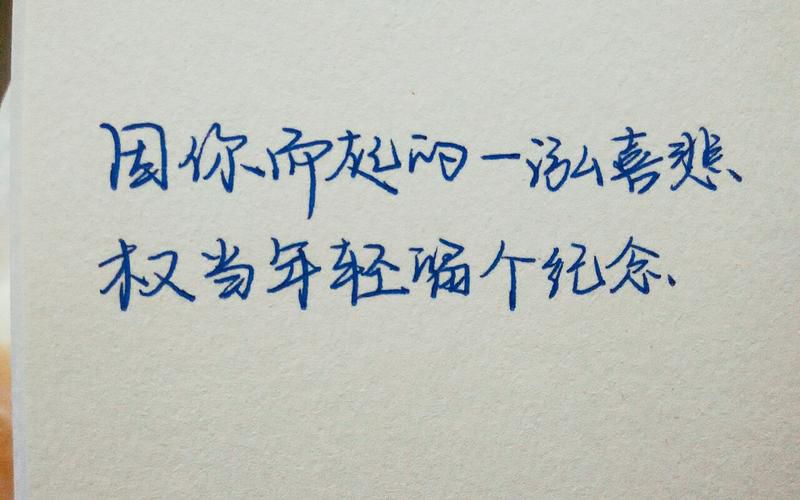 因你而起的一泓喜悲、
权当年轻骗个纪念、